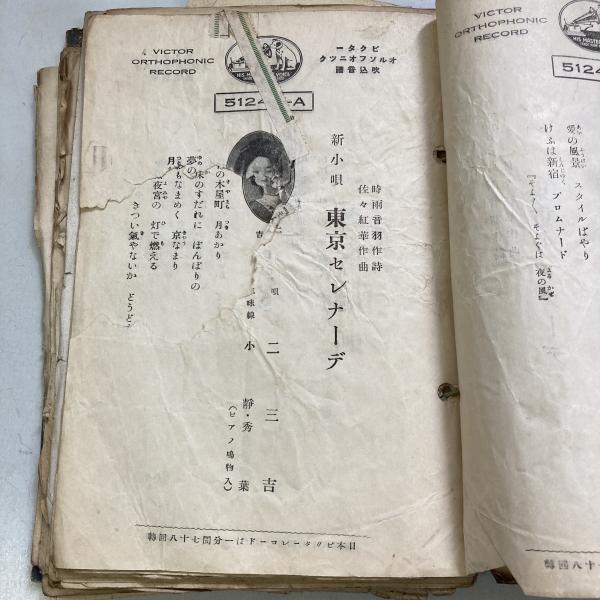 VICTOR
ORTHOPHONIC
RECORD
HIS MASTER'S VOICE
ービタクビ
クツニオフソルオ
譜音込吹
5124 -A
時雨音羽作詩
佐々紅華作曲
新小唄 東京セレナーデ
唄 二三吉
三味線 小静・秀葉
(ピアノ鳴物入)
の木屋町 月あかり
床のすだれに ぼんぼりの
夢も なまめく 京なまり
月の夜宮の 灯で燃える
きつい氣やないか どうどす
日本ビクターレコードは一分間七十八回轉
VICTOR
ORTHOPHONIC
RECORD
HIS MASTER'S
5124
愛の風景 スタイルばやり
けふは新宿 プロムナード
『そよ〳〵 そよぐは 夜の風』
十八回轉